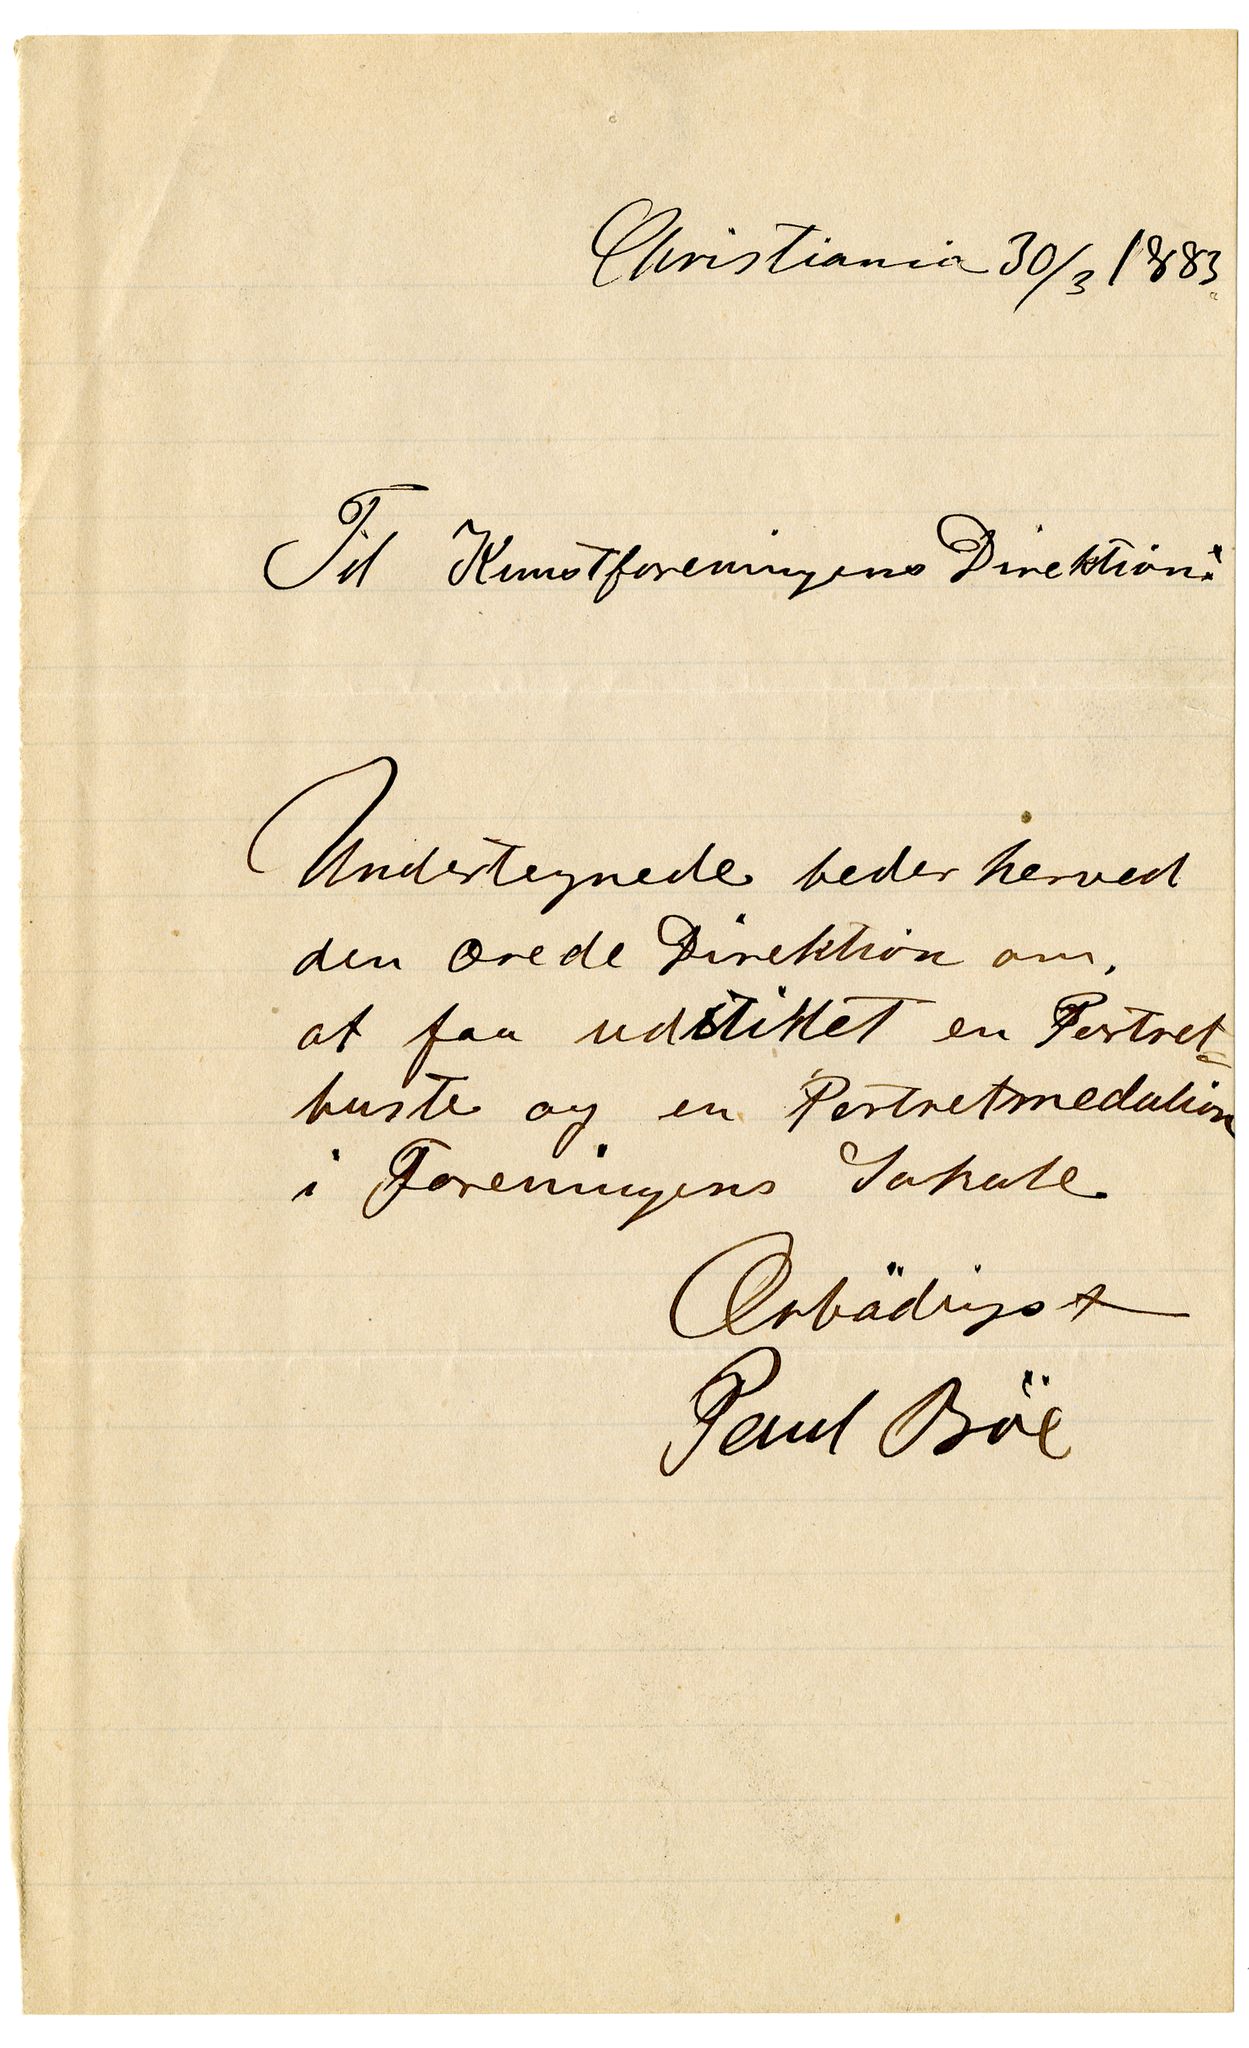 Christiania 30/3 1883.
Til Kunstforeningens Direktion!
Undertegnede beder herved
den ærede Direktion om,
at faa udstillet en Portret=
buste og en Portretmedalion
i Foreningens Lokale
Ærbödigst
Paul Böe